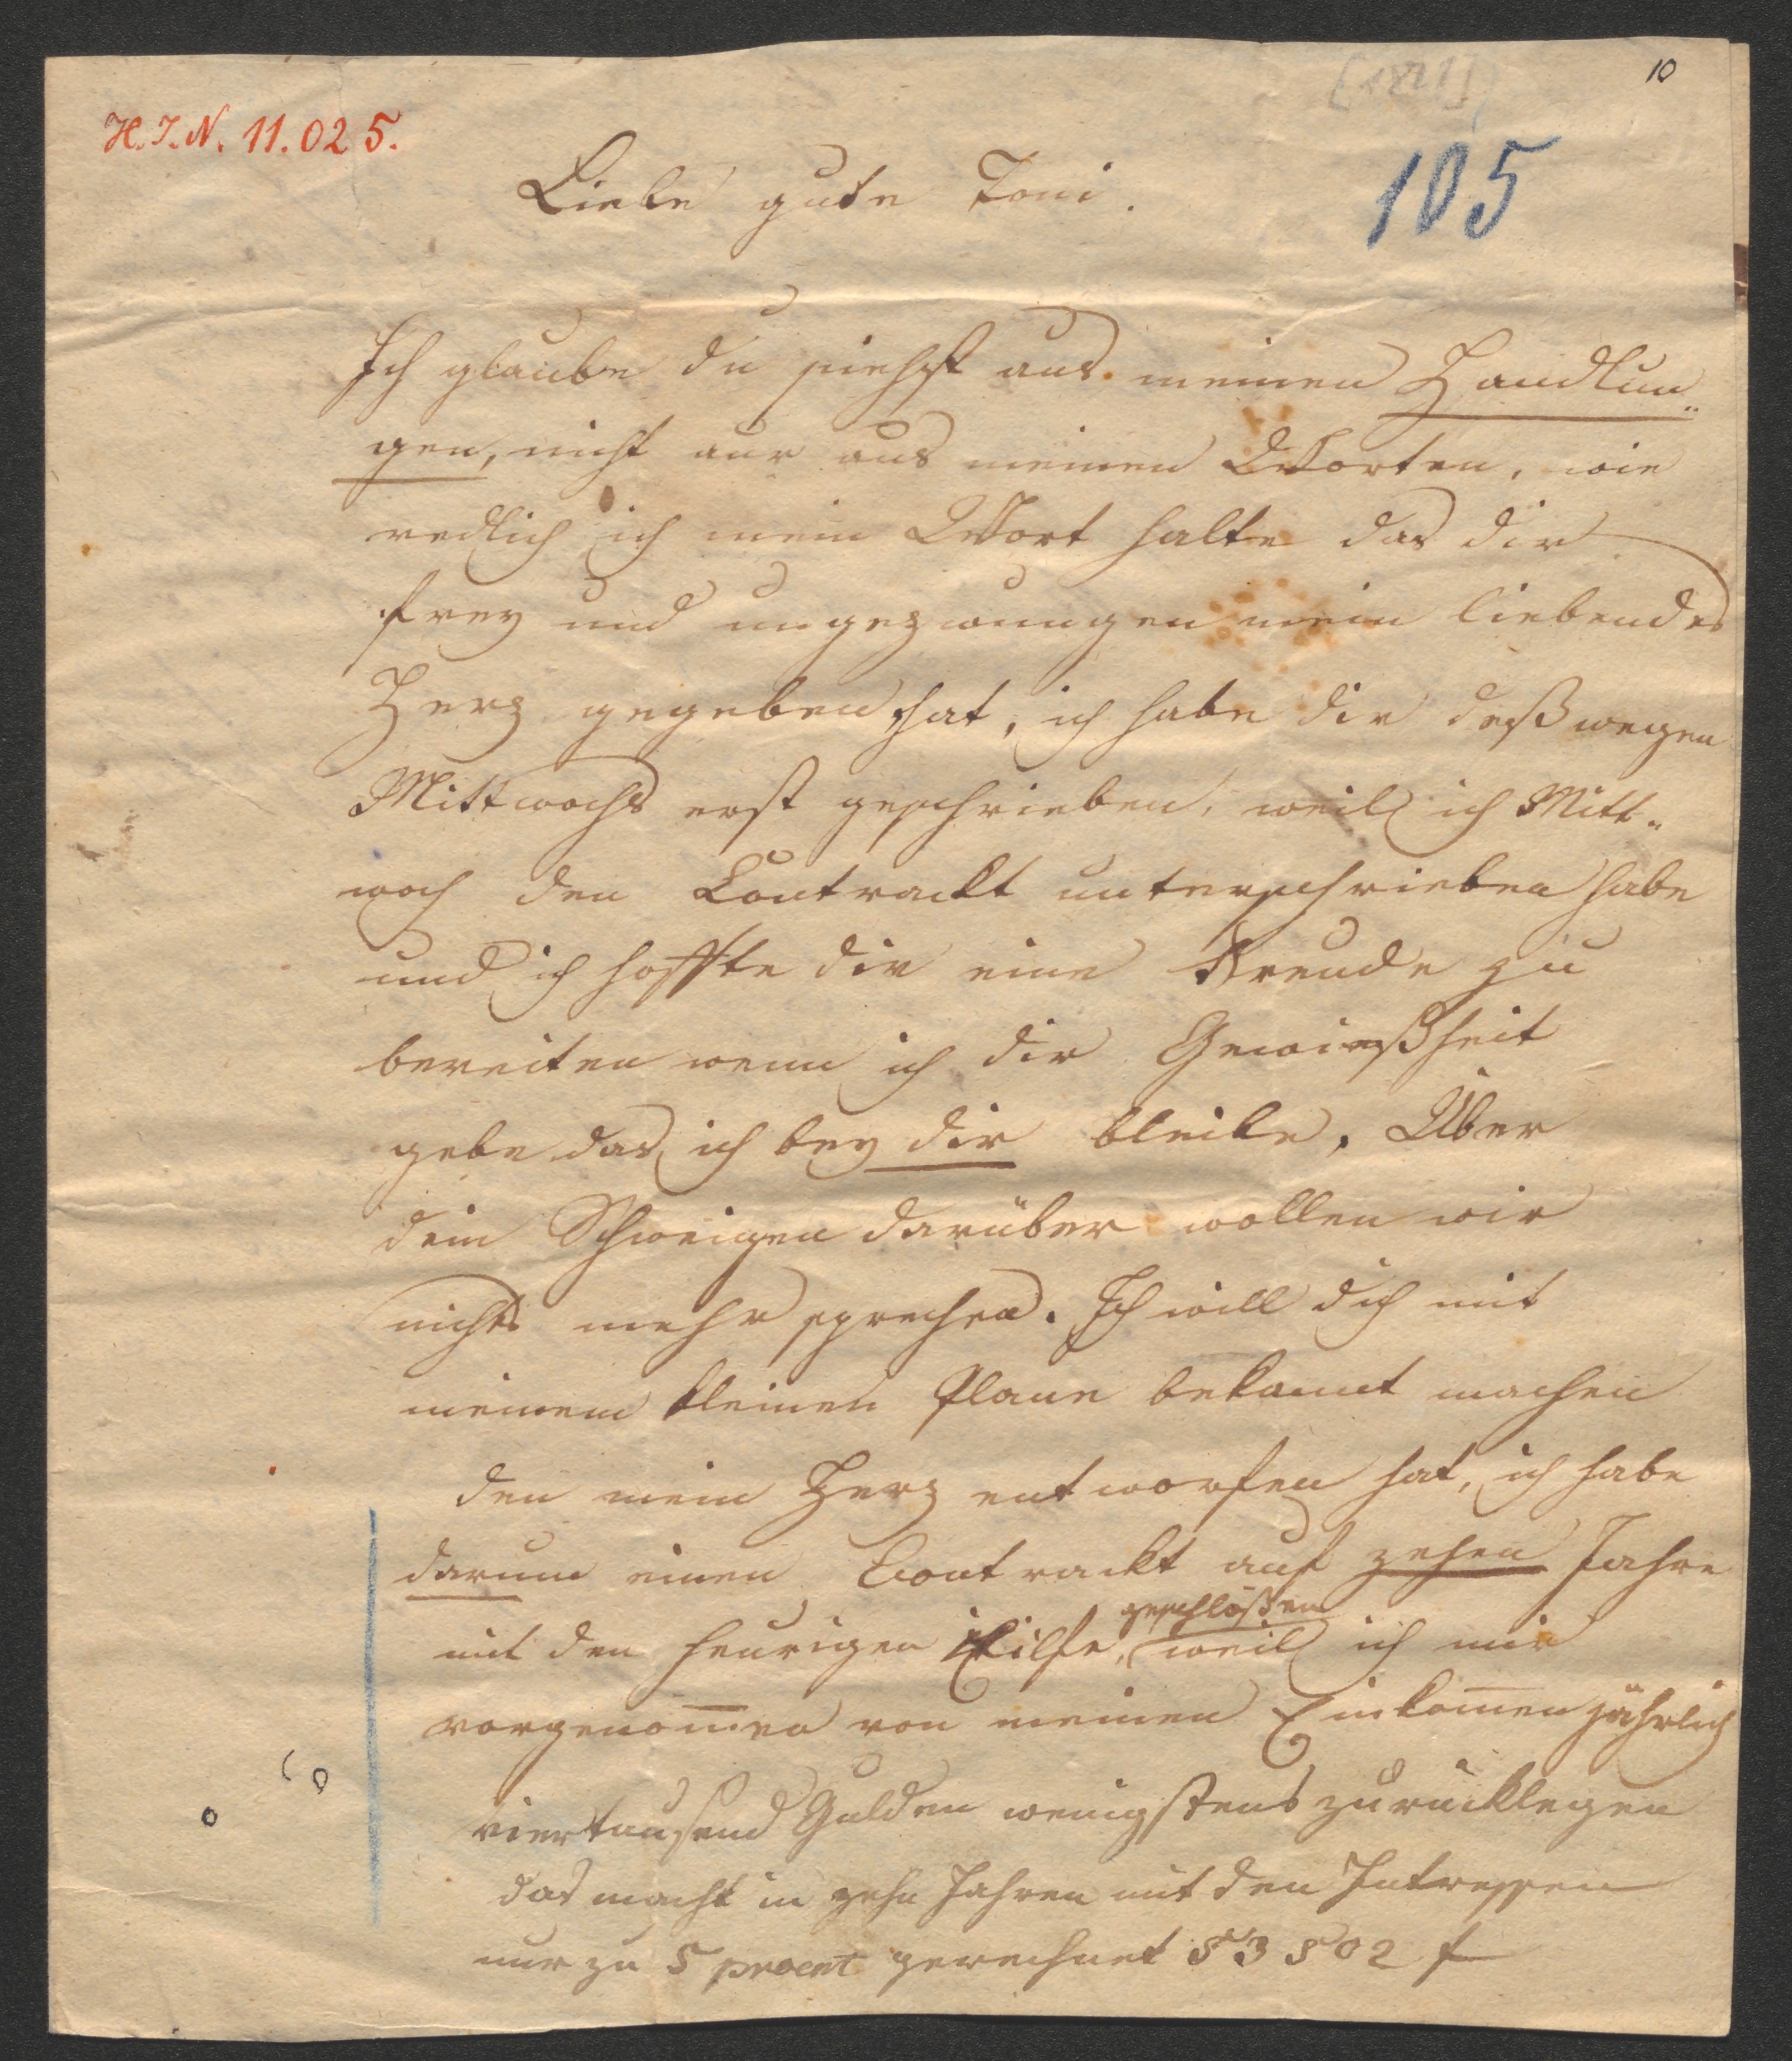 10
[1821]
H.I.N. 11.025.
105
Liebe gute Toni.
Ich glaube du siehst aus meinen Handlun„
gen, nicht nur aus meinen Worten, wie
redlich ich mein Wort halte das dir
frey und ungezwungen mein liebendes
Herz gegeben hat, ich habe dir deßwegen
Mittwochs erst geschrieben, weil ich Mitt„
woch den Contrackt unterschrieben habe
und ich hoffte dir eine Freude zu
bereiten wenn ich dir Gewießheit
gebe das ich bey dir bleibe. Über
dein Schweigen darüber wollen wir
nichts mehr sprechen. Ich will dich mit
meinem kleinen Plane bekannt machen
den mein Herz entworfen hat, ich habe
darum einen Contrackt auf zehen Jahre
geschloßen
mit den heurigen Eilfe, weil ich mir
vorgenom̄en von meinen Einkom̄en jährlich
viertausend Gulden wenigstens zurücklegen
das macht in zehn Jahren mit den Intressen
nur zu 5 procent gerechnet 53802 f